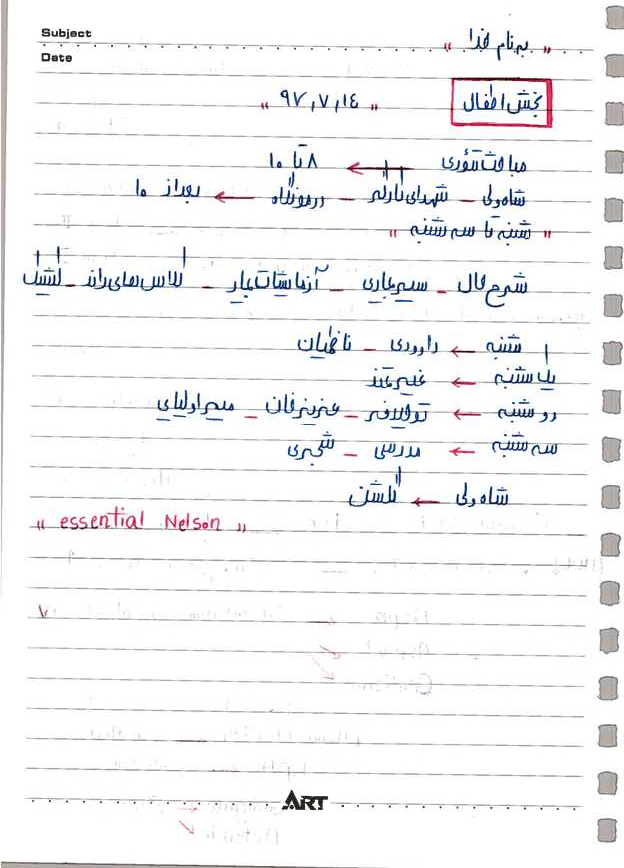 Subject
Date
" به نام خدا "
بخش اطفال " ۹۷,۷,۱٤ "
مباحث تئوری ← ۸ تا ۱۰
شاه ولی - شهدای کارگر - درمونگاه ← بعد از ۱۰
" شنبه تا سه شنبه "
شرح حال - سیر بیماری - آزمایشات بیمار - کلاس های راند - کشیک
شنبه ← داوودی - ناظمیان
یک شنبه ← غیرتمند
دو شنبه ← عزیزخان - میر اولیای
سه شنبه ← مدرسی - شجری
شاه ولی ← گلشن
" essential Nelson "
ART